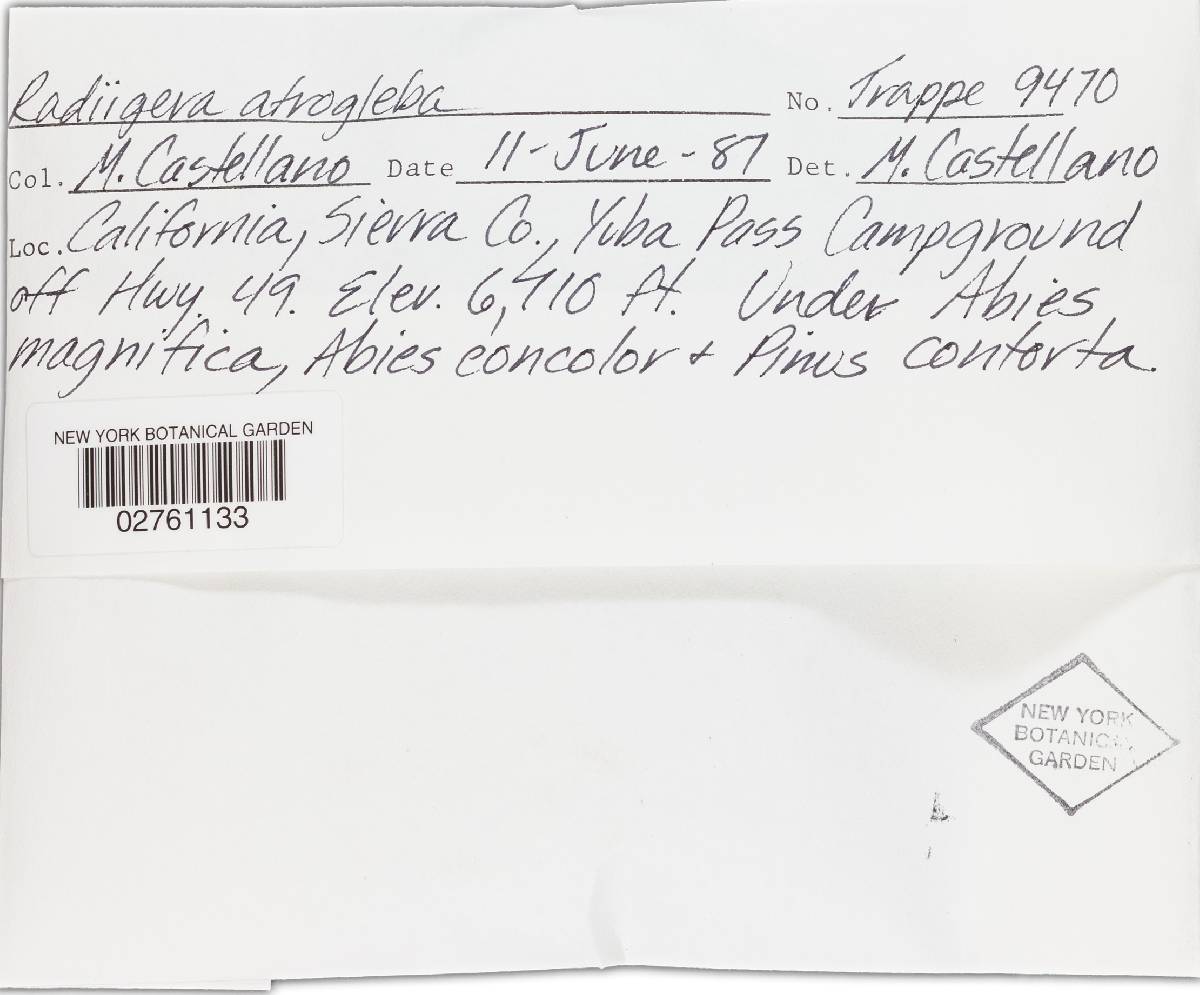 Radiigera atrogleba No. Trappe 9470
Col. M. Castellano Date 11-June-87 Det. M. Castellano
Loc. California, Sierra Co., Yuba Pass Campground
off Hwy. 49. Elev. 6,710 ft. Under Abies
magnifica, Abies concolor + Pinus contorta.
NEW YORK BOTANICAL GARDEN
02761133
NEW YORK
BOTANICAL
GARDEN